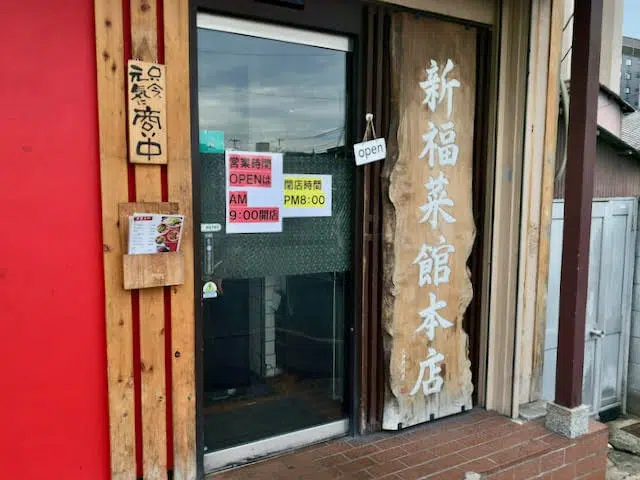 只今、
元気に
商い中
営業時間
OPENは
AM
9:00開店
閉店時間
PM8:00
open
新福菜館本店